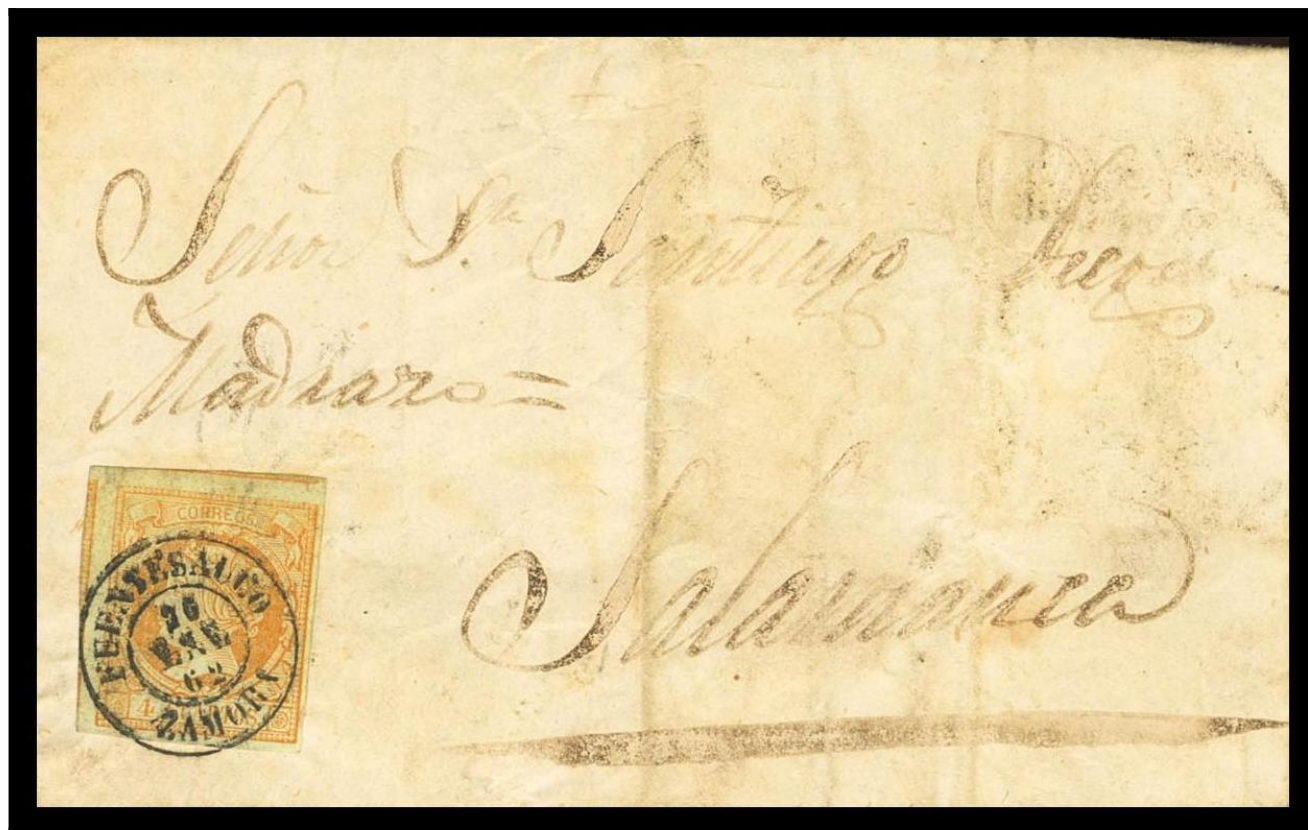 Señor Dn. Santiago Diego
Madrazo =
Salamanca
CORREOS
FUENTESAUCO
26
ENE
62
ZAMORA